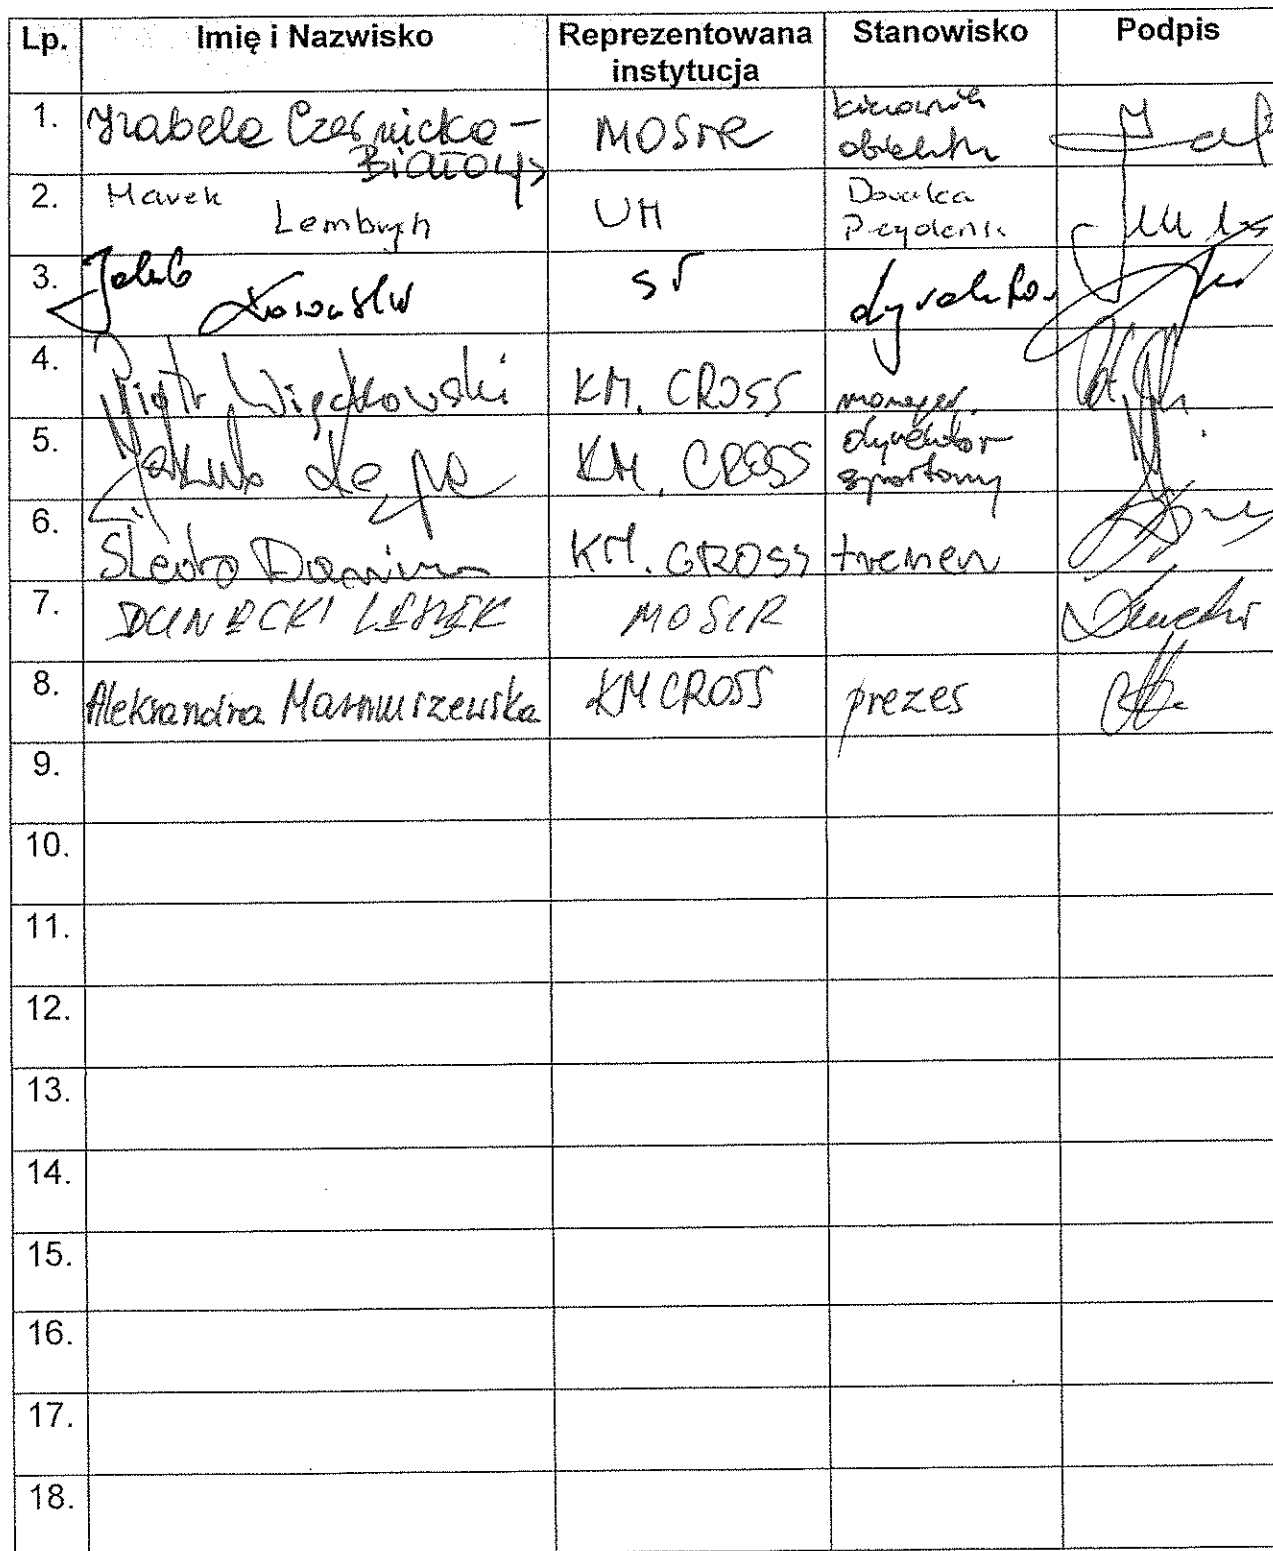 Lp. Imię i Nazwisko Reprezentowana instytucja Stanowisko Podpis
1. Izabela Czernicka - Białous MOSiR kierownik obiektu
2. Marek Lembrych UM Doradca Prezydenta
3. Jakub SP dyrektor
4. Piotr Więckowski KM. CROSS manager
5. Jakub KM. CROSS dyrektor sportowy
6. KM. CROSS trener
7. DUNECKI LESZEK MOSiR
8. Aleksandra Marmuszewska KM CROSS prezes
9.
10.
11.
12.
13.
14.
15.
16.
17.
18.